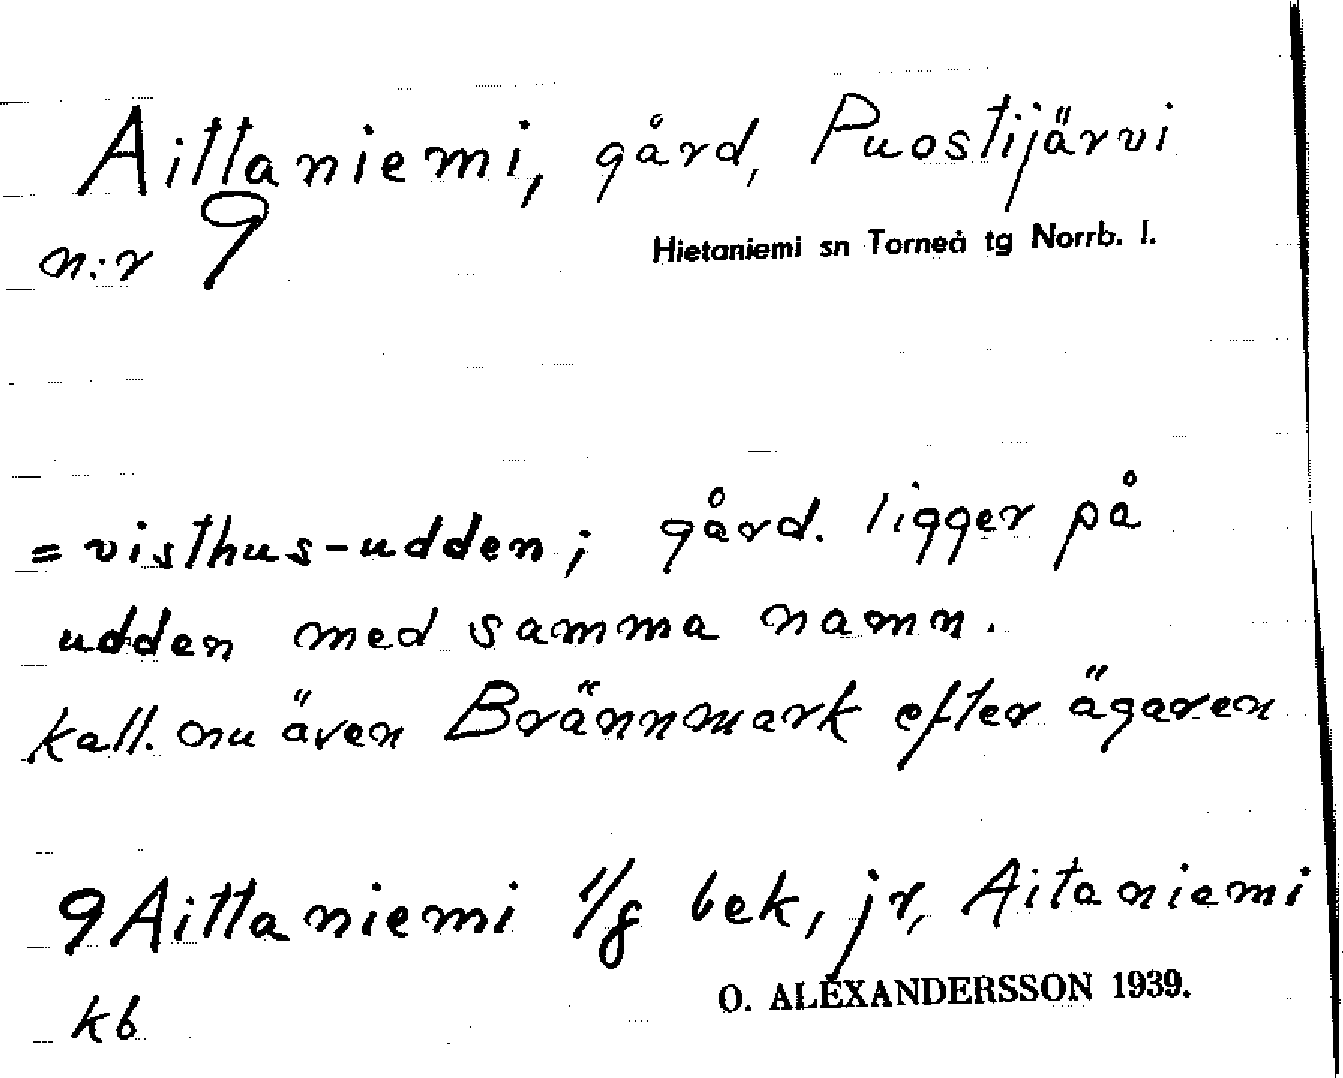 Aittaniemi, gård, Puostijärvi
n:r 9
Hietaniemi sn Torneå tg Norrb. l.
= visthus-udden; gård. ligger på
udden med samma namn.
kall. nu även Brännmark efter ägaren
9 Aittaniemi 1/8 bek, jr, Aitaniemi
kb
O. ALEXANDERSSON 1939.